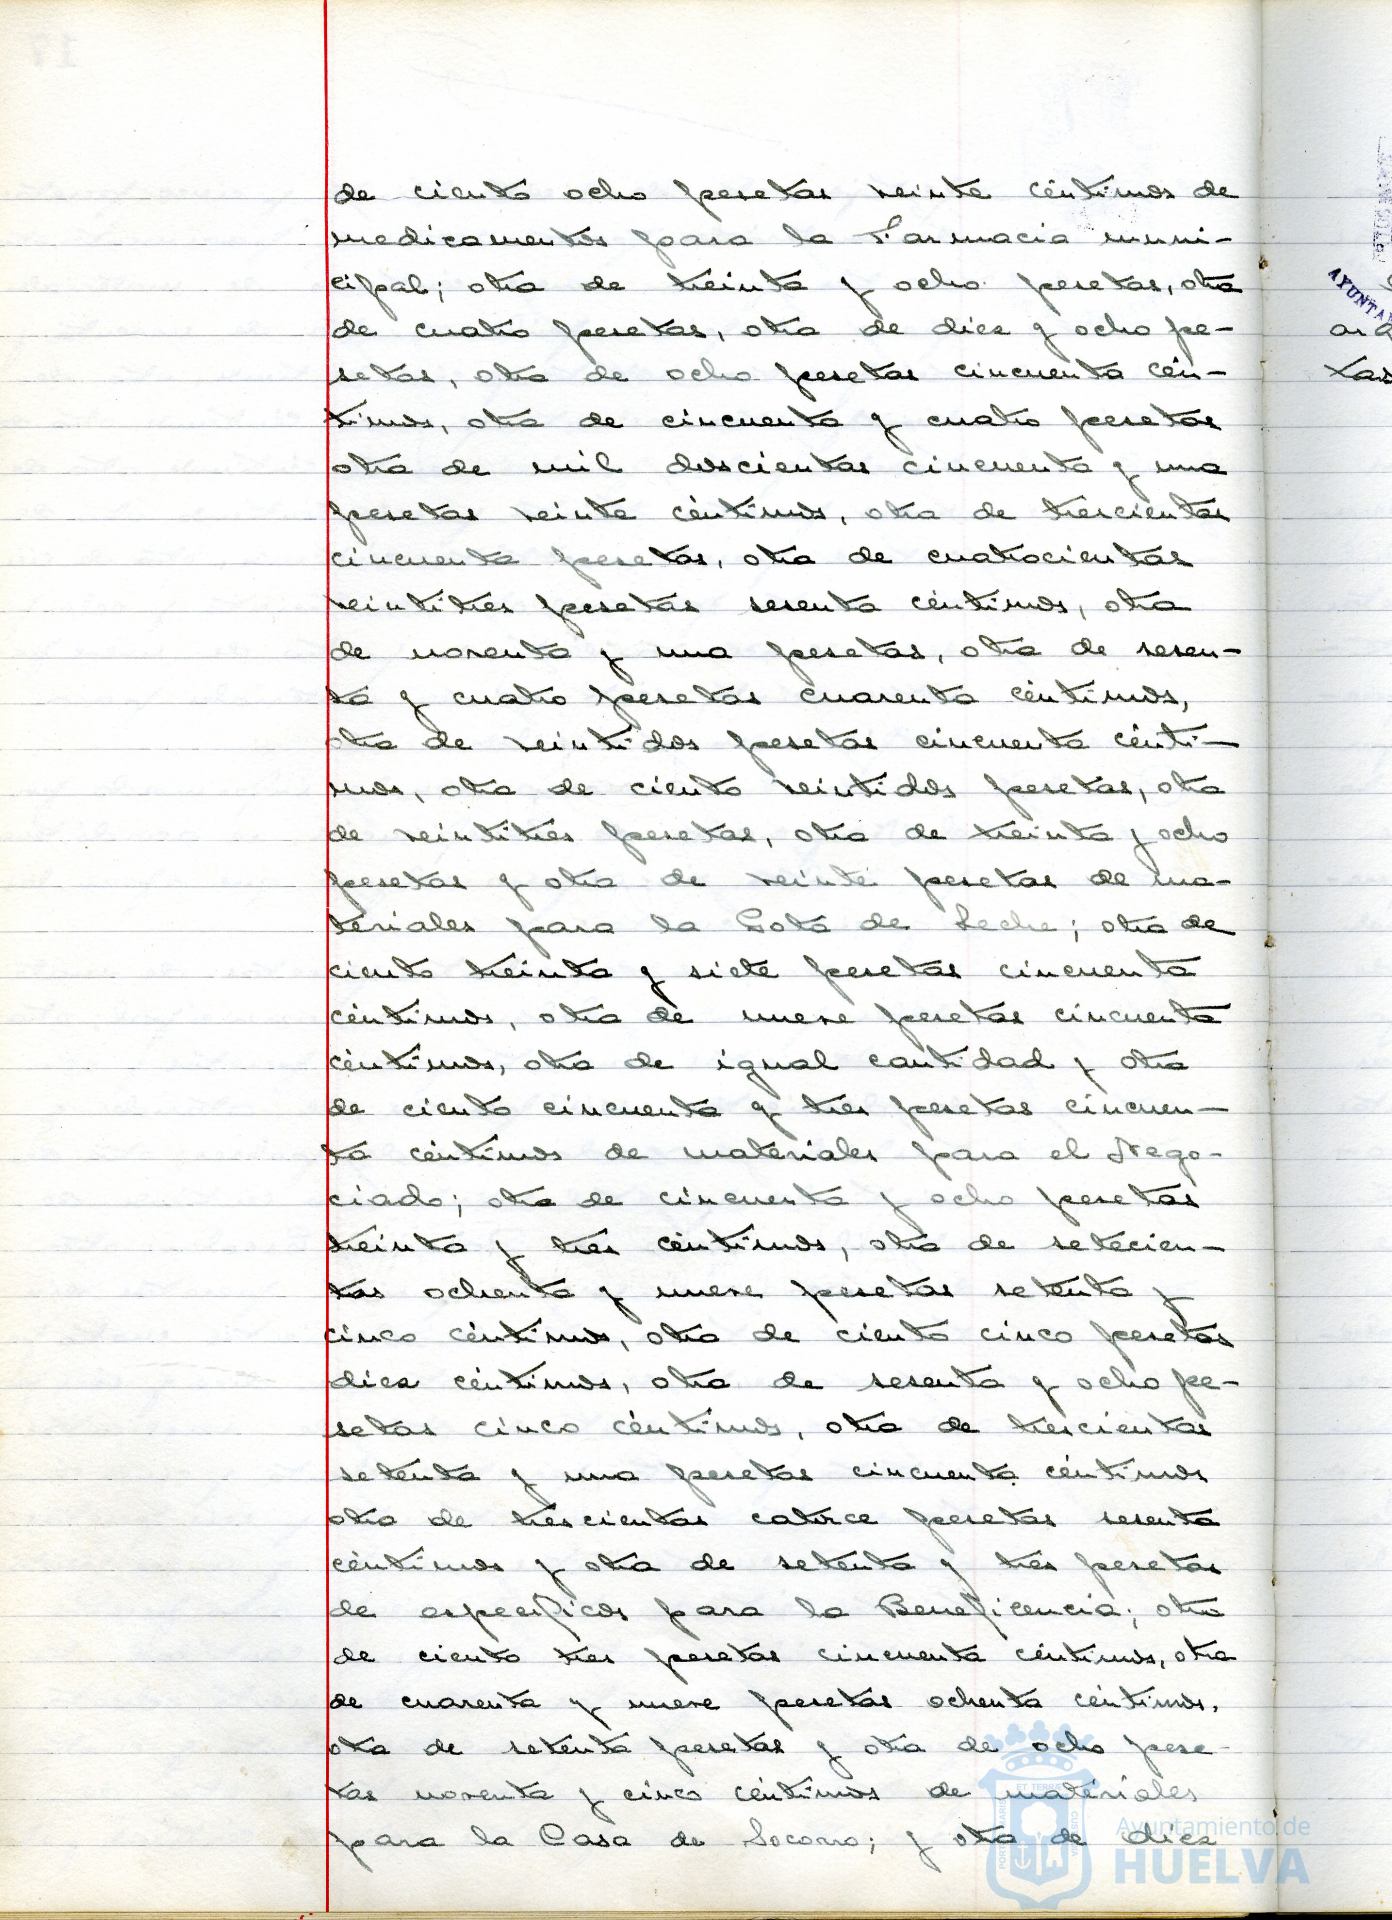 de ciento ocho pesetas veinte céntimos de
medicamentos para la Farmacia muni-
cipal; otra de treinta y ocho pesetas, otra
de cuatro pesetas, otra de diez y ocho pe-
setas, otra de ocho pesetas cincuenta cén-
timos, otra de cincuenta y cuatro pesetas
otra de mil doscientas cincuenta y una
pesetas veinte céntimos, otra de trescientas
cincuenta pesetas, otra de cuatrocientas
veintitres pesetas sesenta céntimos, otra
de noventa y una pesetas, otra de sesen-
ta y cuatro pesetas cuarenta céntimos,
otra de veintidos pesetas cincuenta cénti-
mos, otra de ciento veintidos pesetas, otra
de veintitres pesetas, otra de treinta y ocho
pesetas y otra de veinte pesetas de ma-
teriales para la Gota de Leche; otra de
ciento treinta y siete pesetas cincuenta
céntimos, otra de nueve pesetas cincuenta
céntimos, otra de igual cantidad y otra
de ciento cincuenta y tres pesetas cincuen-
ta céntimos de materiales para el Nego-
ciado; otra de cincuenta y ocho pesetas
treinta y tres céntimos, otra de setecien-
tas ochenta y nueve pesetas setenta y
cinco céntimos, otra de ciento cinco pesetas
diez céntimos, otra de sesenta y ocho pe-
setas cinco céntimos, otra de trescientas
setenta y una pesetas cincuenta céntimos
otra de trescientas catorce pesetas sesenta
céntimos y otra de setenta y tres pesetas
de específicos para la Beneficencia; otra
de ciento tres pesetas cincuenta céntimos, otra
de cuarenta y nueve pesetas ochenta céntimos,
otra de setenta pesetas y otra de ocho pese-
tas noventa y cinco céntimos de materiales
para la Casa de Socorro; y otra de diez
AYUNTA
tas
Ayuntamiento de
HUELVA